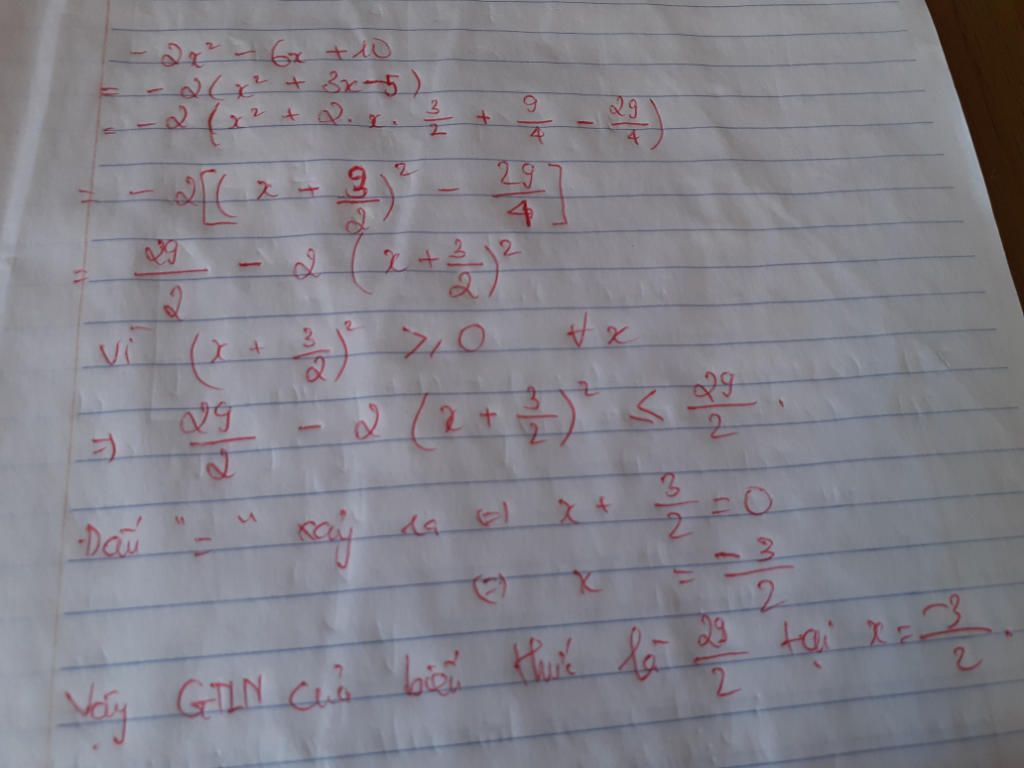 - 2x² - 6x + 10
= - 2(x² + 3x - 5)
= - 2(x² + 2. x. 3/2 + 9/4 - 29/4)
= - 2[(x + 9/2)² - 29/4]
= 29/2 - 2(x + 3/2)²
Vì (x + 3/2)² ≥ 0 ∀x
=> 29/2 - 2(x + 3/2)² ≤ 29/2.
Dấu "=" xảy ra (=) x + 3/2 = 0
(=) x = -3/2
Vậy GTLN của biểu thức là 29/2 tại x = -3/2.